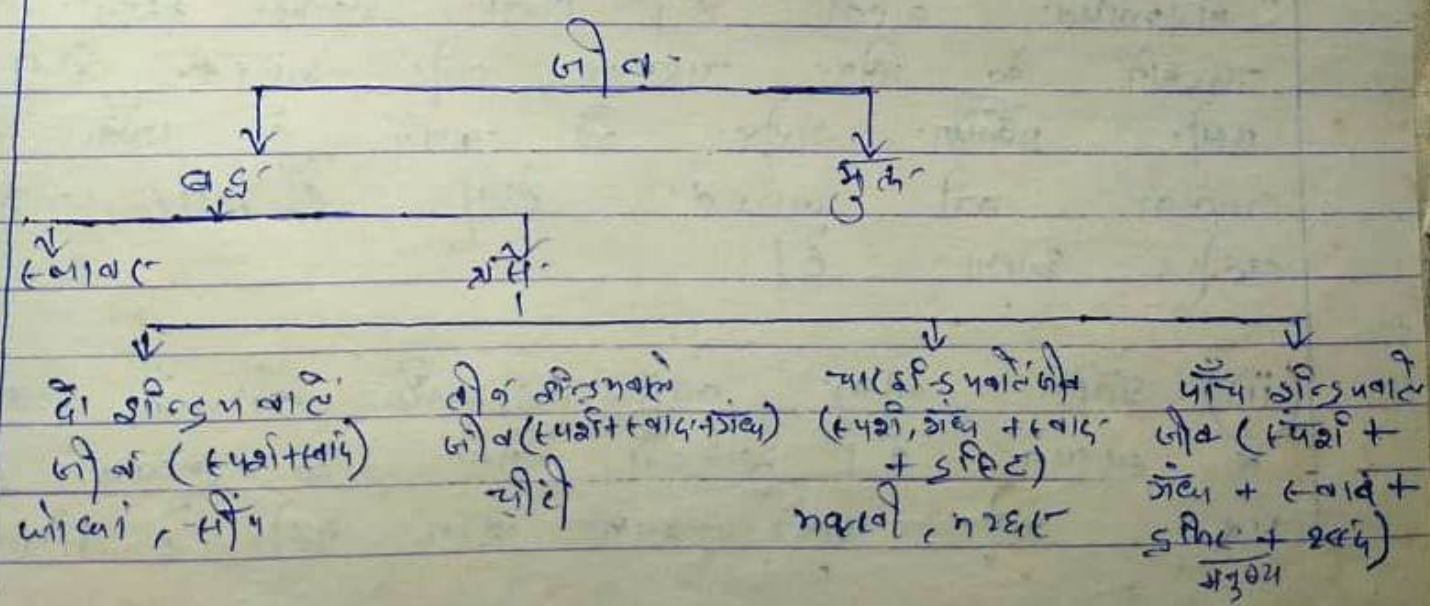 जीव
बद्ध
मुक्त
स्थावर
त्रस
दो इन्द्रिय वाले
जीव (स्पर्श+स्वाद)
घोंघा, सीप
तीन इन्द्रियवाले
जीव (स्पर्श+स्वाद+गंध)
चींटी
चार इन्द्रियवाले जीव
(स्पर्श, गंध + स्वाद
+ दृष्टि)
मक्खी, मच्छर
पाँच इन्द्रियवाले
जीव (स्पर्श +
गंध + स्वाद +
दृष्टि + शब्द)
मनुष्य